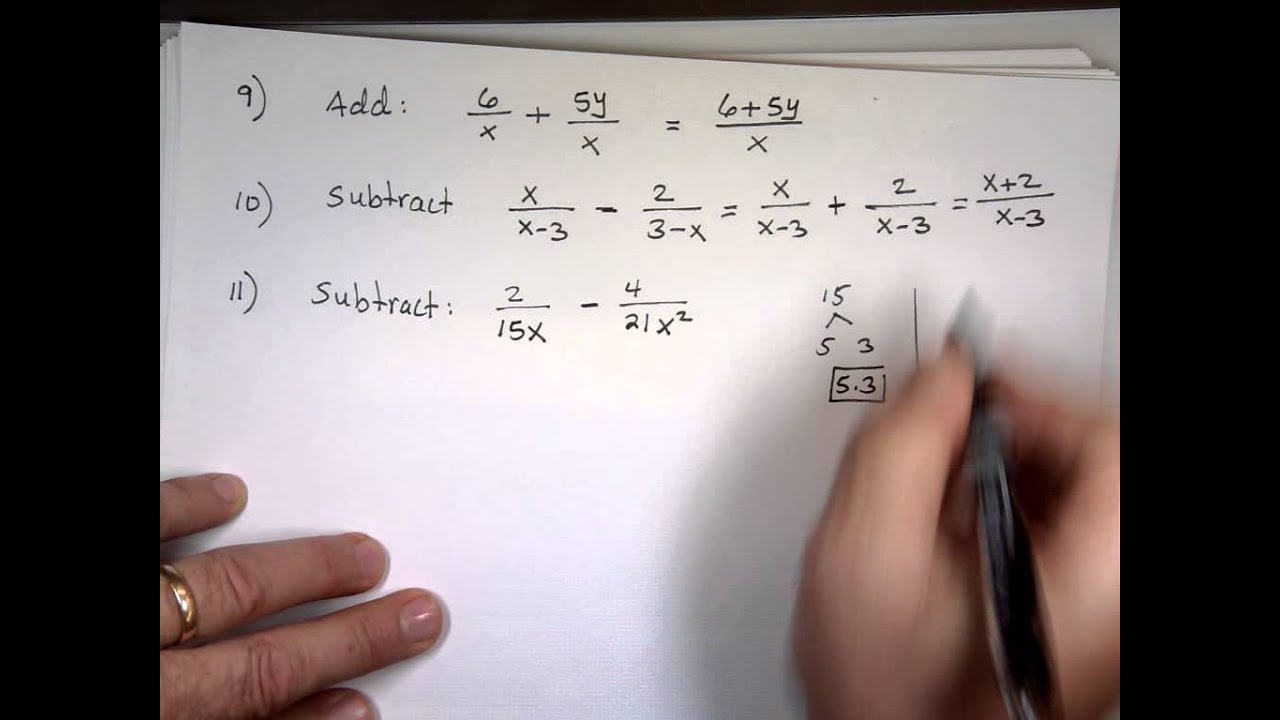 9) Add: 6/x + 5y/x = 6+5y/x
10) Subtract x/x-3 - 2/3-x = x/x-3 + 2/x-3 = x+2/x-3
11) Subtract: 2/15x - 4/21x²
15
5 3
5·3